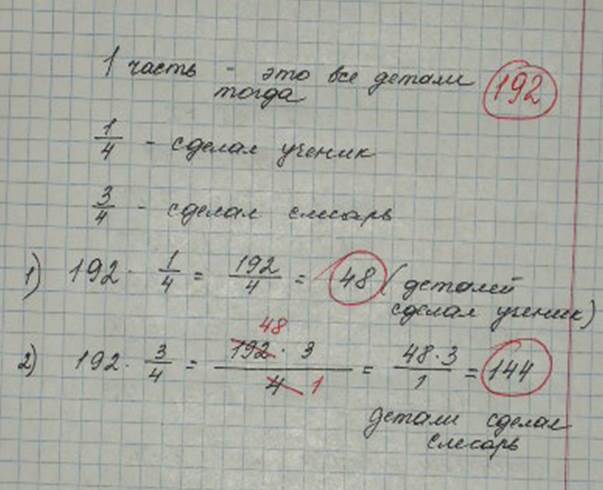 1 часть - это все детали 192
тогда
1/4 - сделал ученик
3/4 - сделал слесарь
1) 192 · 1/4 = 192/4 = 48 (деталей
сделал ученик)
48
2) 192 · 3/4 = 192 · 3 / 4 1 = 48·3/1 = 144
детали сделал
слесарь